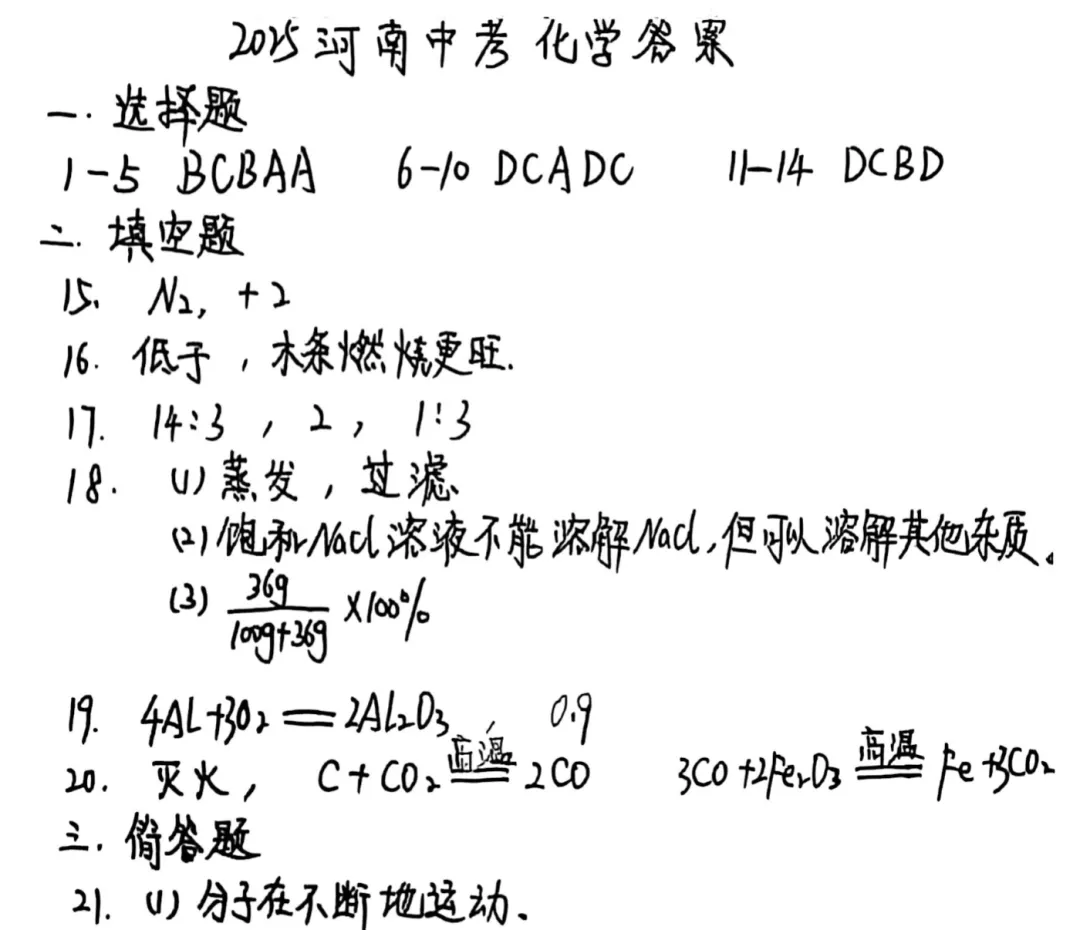 2025河南中考化学答案
一. 选择题
1-5 BCBAA 6-10 DCADC 11-14 DCBD
二. 填空题
15. N₂, +2
16. 低于，木条燃烧更旺.
17. 14:3，2，1:3
18. (1) 蒸发，过滤
(2) 饱和NaCl溶液不能溶解NaCl,但可以溶解其他杂质。
(3) 36g/(100g+36g) ×100%
19. 4Al+3O₂══2Al₂O₃、 0.9
20. 灭火， C+CO₂ ══(高温) 2CO 3CO+2Fe₂O₃ ══(高温) Fe+3CO₂
三. 简答题
21. (1) 分子在不断地运动.